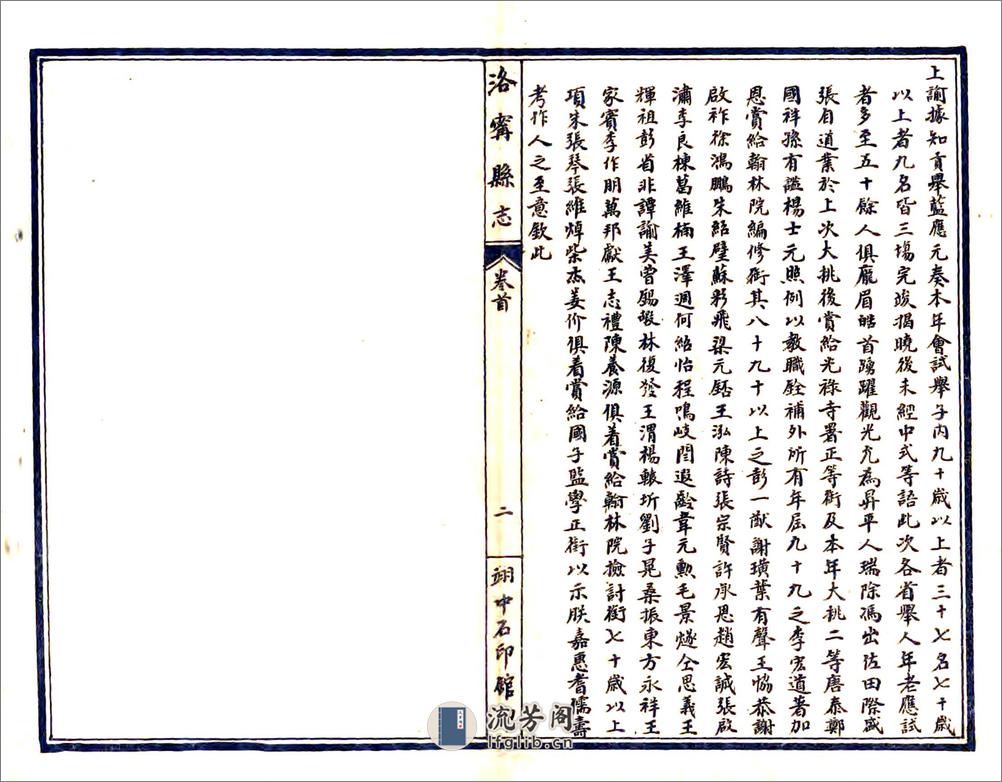 上諭據知貢舉藍應元奏本年會試舉子內九十歲以上者三十七名七十歲
以上者九名皆三場完竣揭曉後未經中式等語此次各省舉人年老應試
者多至五十餘人俱龐眉皓首踴躍觀光允為昇平人瑞除馮出佐田際盛
張自道業於上次大挑後賞給光祿寺署正等銜及本年大挑二等唐秦鄭
國祥孫有謐楊士元照例以教職銓補外所有年屆九十九之李宏道著加
恩賞給翰林院編修銜其八十九十以上之彭一猷謝璜葉有聲王協恭謝
啟祚徐鴻鵬朱紹璧蘇彩飛梁元王泓陳詩張宗賢許承恩趙宏誠張啟
瀟李良棟葛維楠王澤週何紹怡程鳴岐閻遐齡韋元勳毛景燧仝思義王
輝祖彭省非譚諭美曾賜嘏林復發王渭楊轍圻劉子晃桑振東方永祥王
家賓李作朋萬邦獻王志禮陳養源俱着賞給翰林院檢討銜七十歲以上
項朱張琴張維焯柴杰姜价俱着賞給國子監學正銜以示朕嘉惠耆儒壽
考作人之至意欽此
洛寧縣志
卷首
二
翊中石印館
流芳阁
lfglib.cn